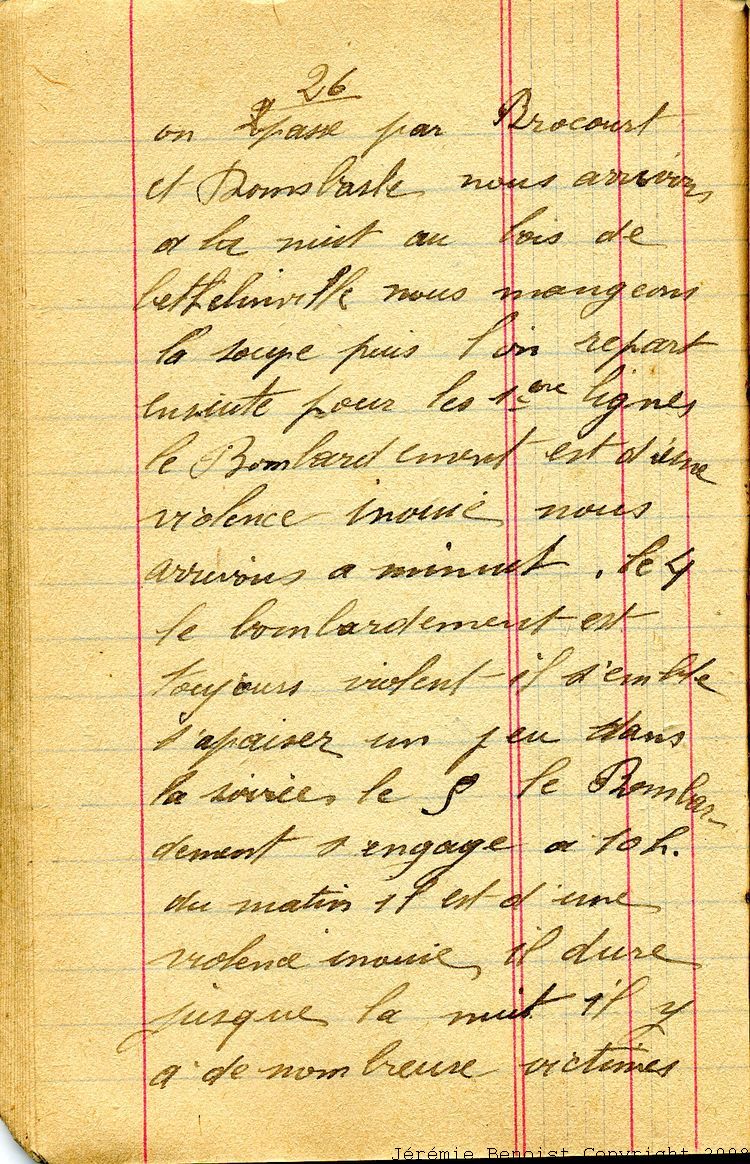 26
on passe par Brocourt
et Dombasle nous arrivons
a la nuit au bois de
bethelinville nous mangeons
la soupe puis l'on repart
ensuite pour les 1ere lignes
le Bombardement est d'une
violence inouïe nous
arrivons a minuit. le 4
le bombardement est
toujours violent il s'emble
s'apaiser un peu dans
la soirée le 5 le Bombar-
dement s'engage a 10 h.
du matin il est d'une
violence inouie il dure
jusque la nuit il y
a de nombreuse victimes
Jérémie Benoist Copyright